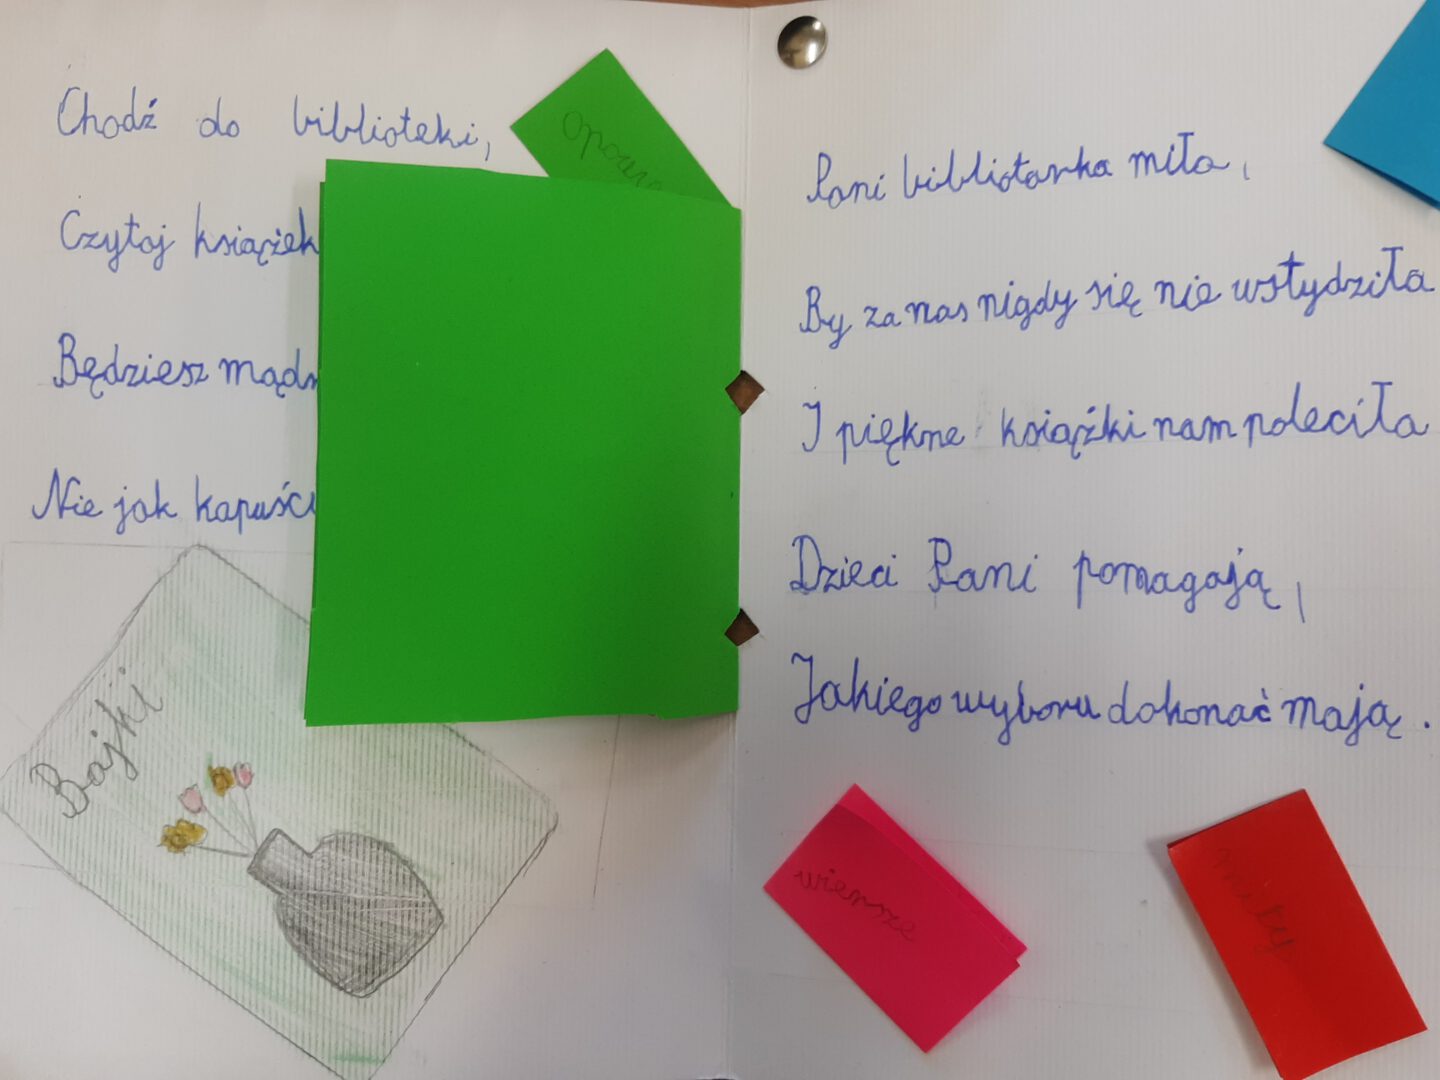 Chodź do biblioteki,
Czytaj książek
Będziesz
Nie jak
Bajki
Pani bibliotarka miła,
By za nas nigdy się nie wstydziła
I piękne książki nam poleciła
Dzieci Pani pomagają,
Jakiego wyboru dokonać mają.
wiersze
mity